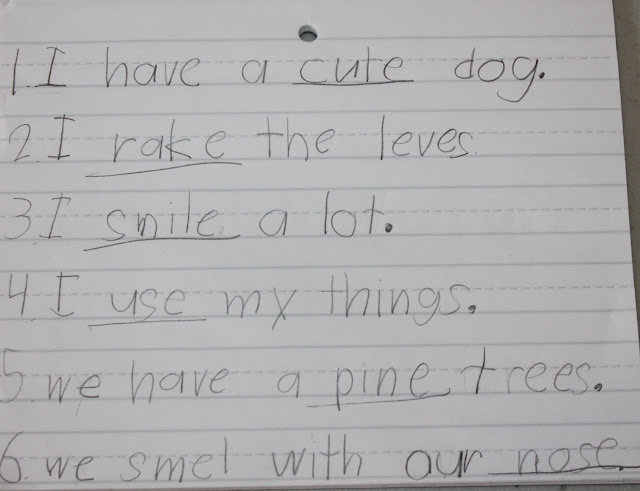 1. I have a cute dog.
2. I rake the leves.
3. I snile a lot.
4. I use my things.
5. we have a pine trees.
6. we smel with our nose.